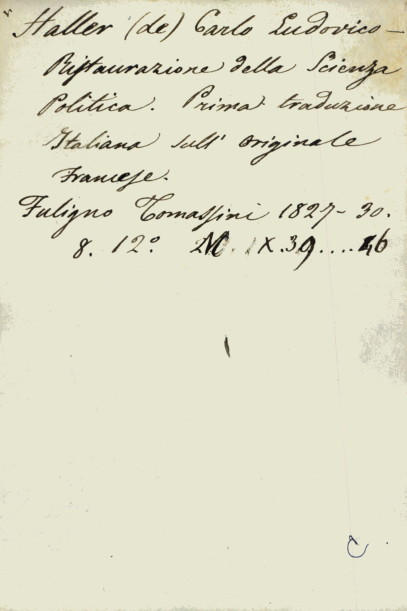 Haller (de) Carlo Ludovico —
Ristaurazione della Scienza
Politica. Prima traduzione
Italiana sull' originale
Francese.
Fuligno Tomassini 1827-30.
8. 12° IX.39....46